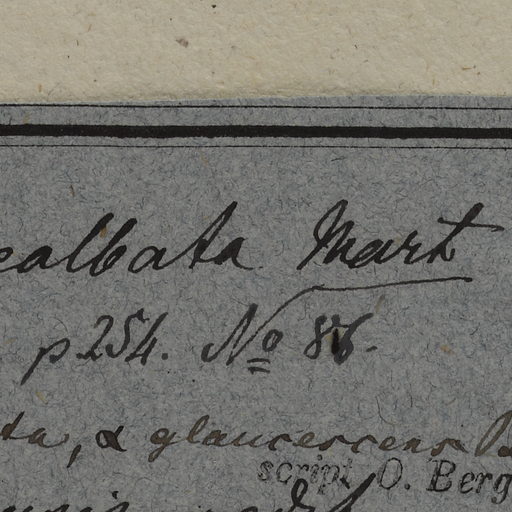 ealbata Mart
p 254. No 86.
ta, α glaucescens B
script. O. Berg